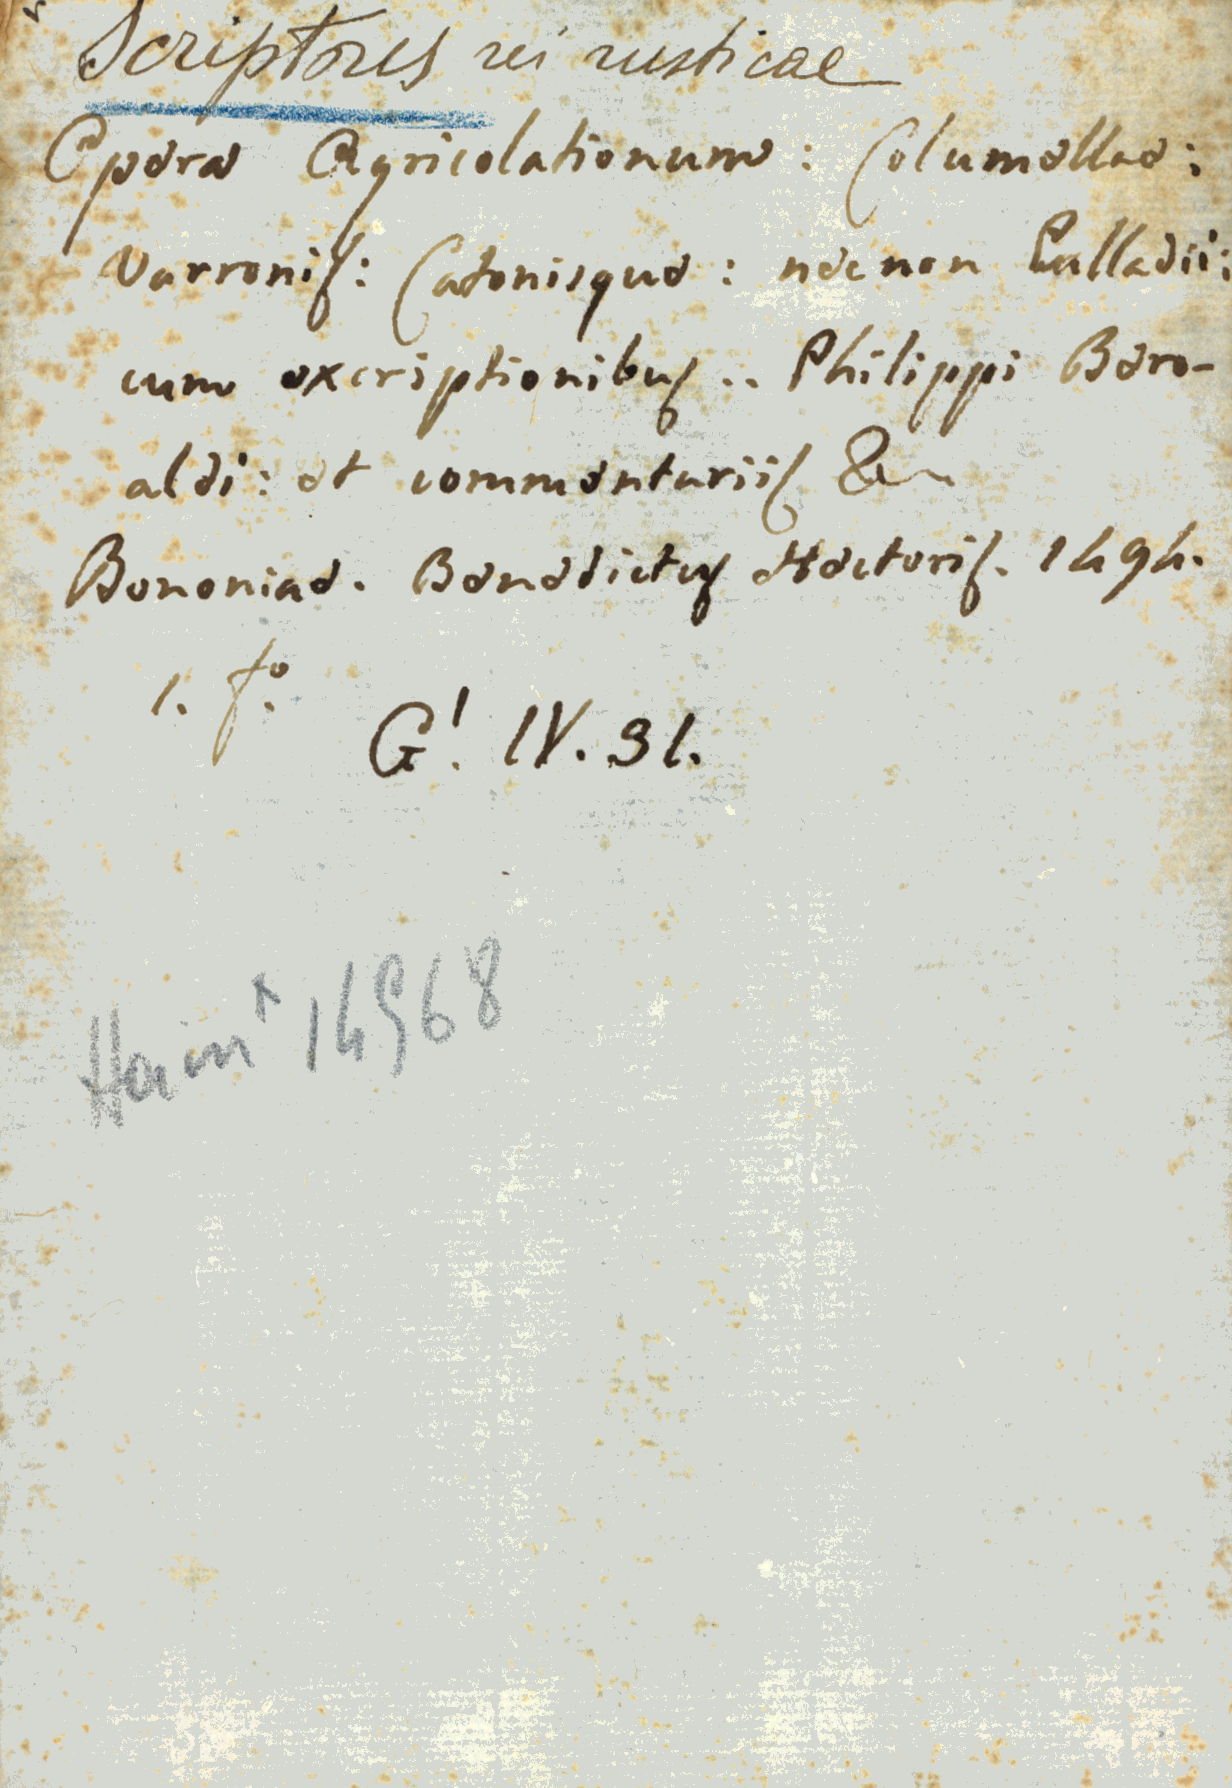 Scriptores rei rusticae
Opera Agricolationum: Columellae:
Varronis: Catonisque: necnon Palladii:
cum excriptionibus .. Philippi Bero-
aldi: et commentariis &c
Bononiae. Benedictus Hectoris. 1494.
1. fo.
G! IV. 31.
Hain* 14568